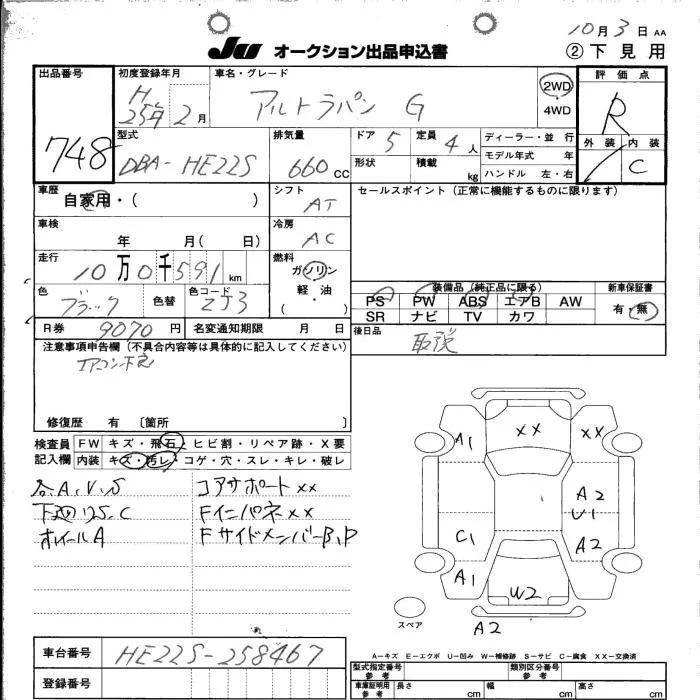 10月3日 AA
JU オークション出品申込書
② 下見用
出品番号 初度登録年月 車名・グレード 評価点
748
H 25年 2月
アルトラパン G
2WD
4WD
R
外装 内装
C
型式 排気量 ドア 5 定員 4人 ディーラー・並行
DBA-HE22S 660cc
形状 積載 kg
モデル年式 年
ハンドル 左・右
車歴 自家用・( ) シフト AT
セールスポイント (正常に機能するものに限ります)
車検 年 月( 日) 冷房 AC
走行 10万0千591km 燃料 ガソリン
軽・油
( )
色 ブラック 色替 色コード ZJ3
装備品(純正品に限る) 新車保証書
PS PW ABS エアB AW
SR ナビ TV カワ
有・無
R券 9070円 名変通知期限 月 日
後日品 取説
注意事項申告欄 (不具合内容等は具体的に記入してください)
エアコン不良
修復歴 有 〔箇所 〕
検査員 FW キズ・飛石・ヒビ割・リペア跡・X要
記入欄 内装 キズ・汚レ・コゲ・穴・スレ・キレ・破レ
各A.U.S コアサポートXX
下廻りS.C FインパネXX
ホイールA FサイドメンバーB,P
A1 XX XX
A2
U1
C1 A2
A1 W2
スペア A2
A-キズ E-エクボ U-凹み W-補修跡 S-サビ C-腐食 XX-交換済
車台番号 HE22S-258467
登録番号
型式指定番号 参考 類別区分番号 参考
車庫証明用 参考 長さ cm 幅 cm 高さ cm